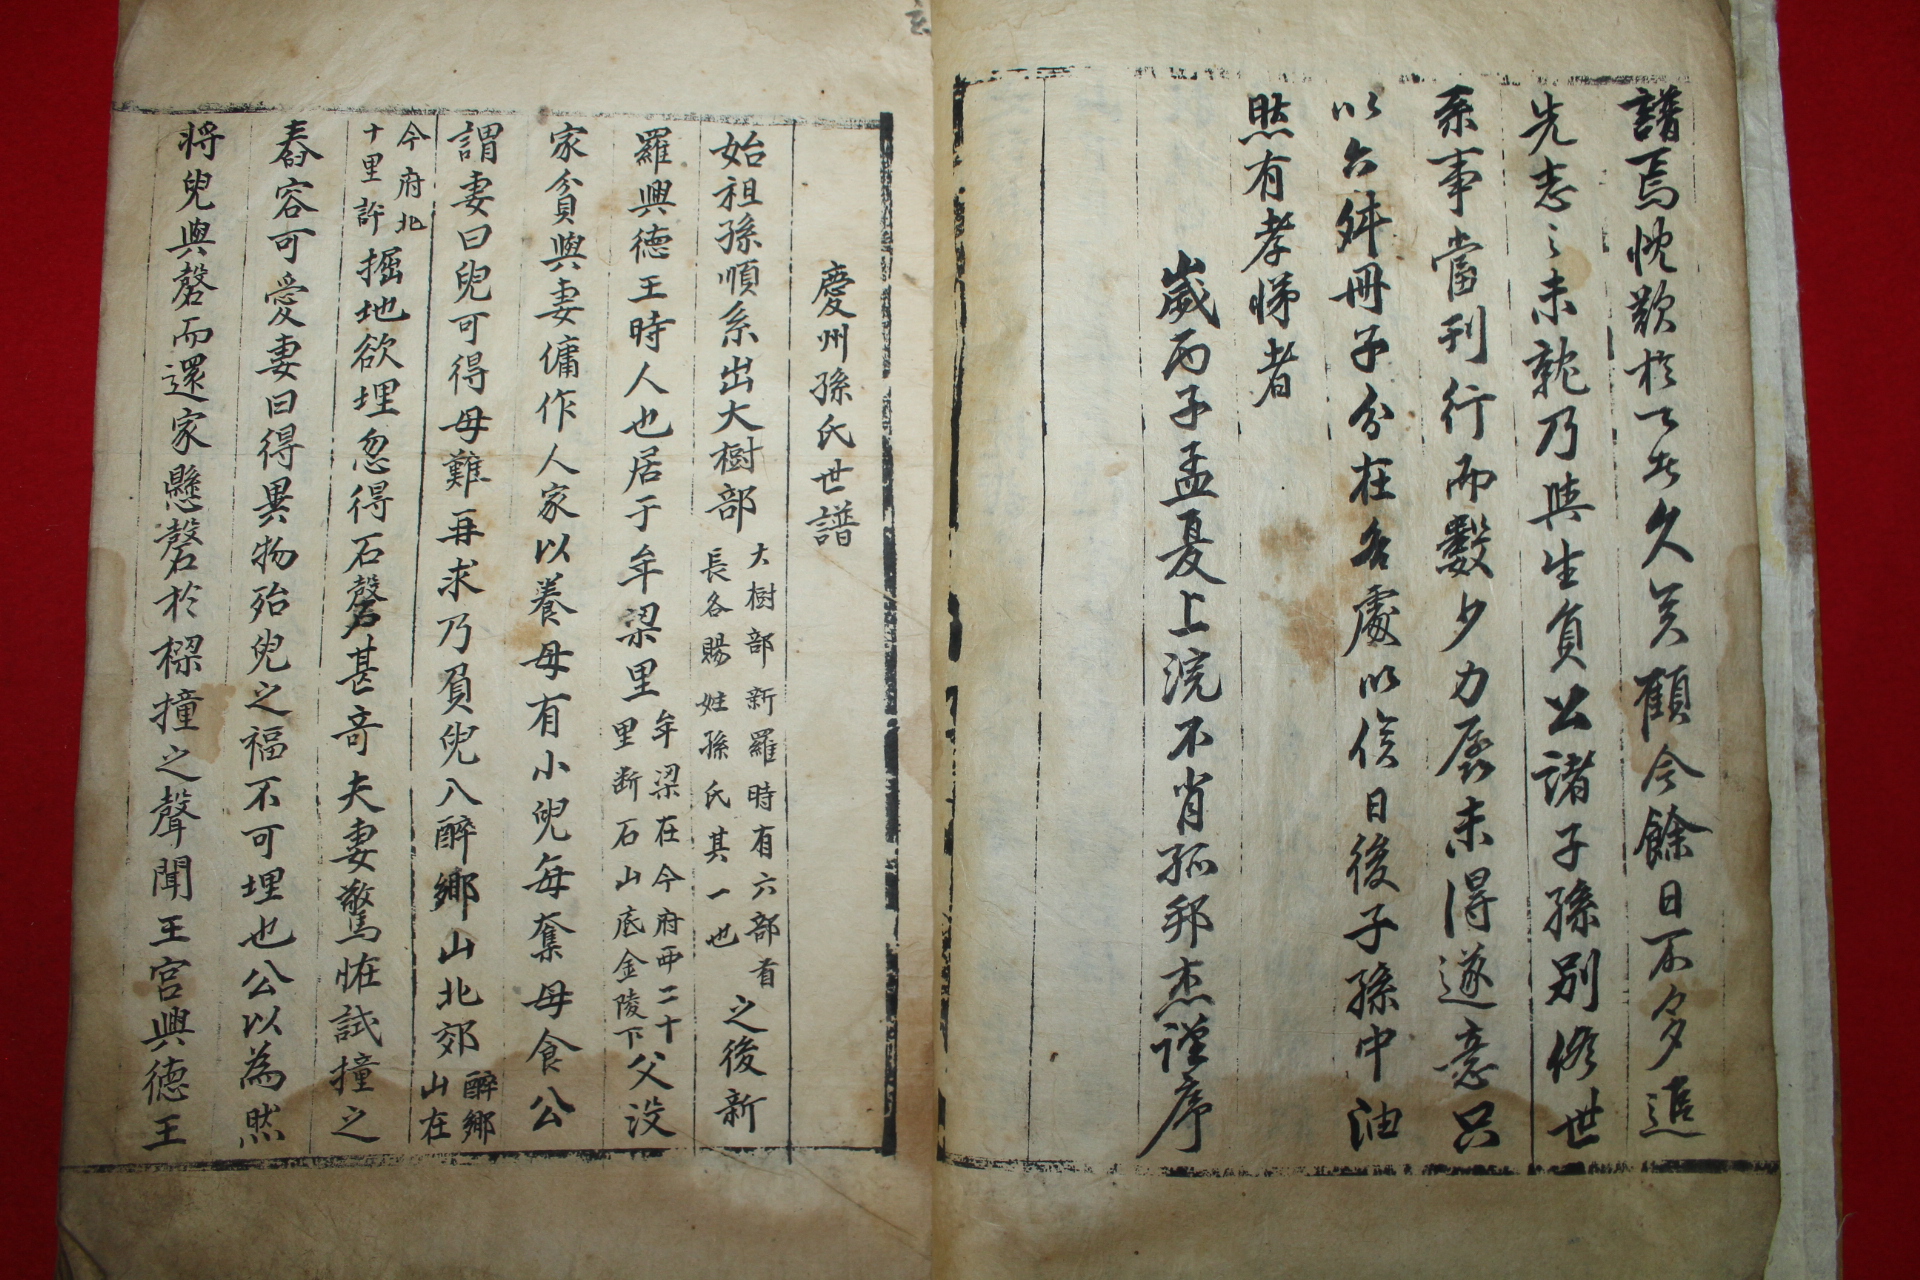 譜焉忱歎於下者久矣顧今餘日不多追
先志之未就乃與生負公諸子孫別修世
系事當刊行而數少力孱未得遂意只
以六舛冊子分在各處以俟日後子孫中油
然有孝悌者
歲丙子孟夏上浣不肖孤邦杰謹序
慶州孫氏世譜
始祖孫順系出大樹部大樹部新羅時有六部首長各賜姓孫氏其一也之後新
羅興德王時人也居于牟梁里牟梁在今府西二十里断石山底金陵下父沒
家貧與妻傭作人家以養母有小兒每奪母食公
謂妻曰兒可得母難再求乃負兒入醉鄉山北郊醉鄉山在
今府北十里許掘地欲埋忽得石磬甚奇夫妻驚恠試撞之
舂容可愛妻曰得異物殆兒之福不可埋也公以為然
将兒與磬而還家懸磬於樑撞之聲聞王宮興德王